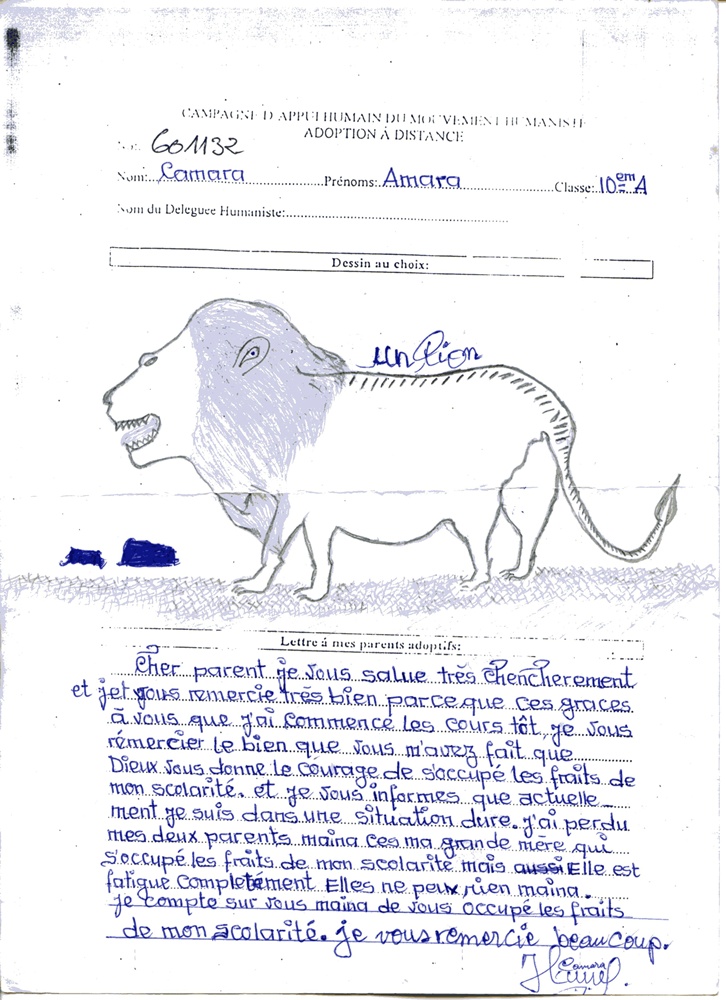 CAMPAGNE D'APPUI HUMAIN DU MOUVEMENT HUMANISTE
ADOPTION À DISTANCE
601132
Nom:. Camara Prénoms: Amara Classe: 10em A
Nom du Deleguee Humaniste:
Dessin au choix:
un lion
Lettre á mes parents adoptifs:
Cher parent je vous salue très chencherement
et jet vous remercie très bien parce que ces graces
à vous que j'ai commencé les cours tôt, je vous
rémercier le bien que vous m'avez fait que
Dieux vous donne le courage de s'occupé les fraits de
mon scolarité. et je vous informes que actuelle_
ment je suis dans une situation dure. j'ai perdu
mes deux parents maina ces ma grande mère qui
s'occupé les fraits de mon scolarité mais aussi Elle est
fatigue completément Elles ne peux rien maina.
je compte sur vous maina de vous occupé les fraits
de mon scolarité. je vous remercie beaucoup.
Camara